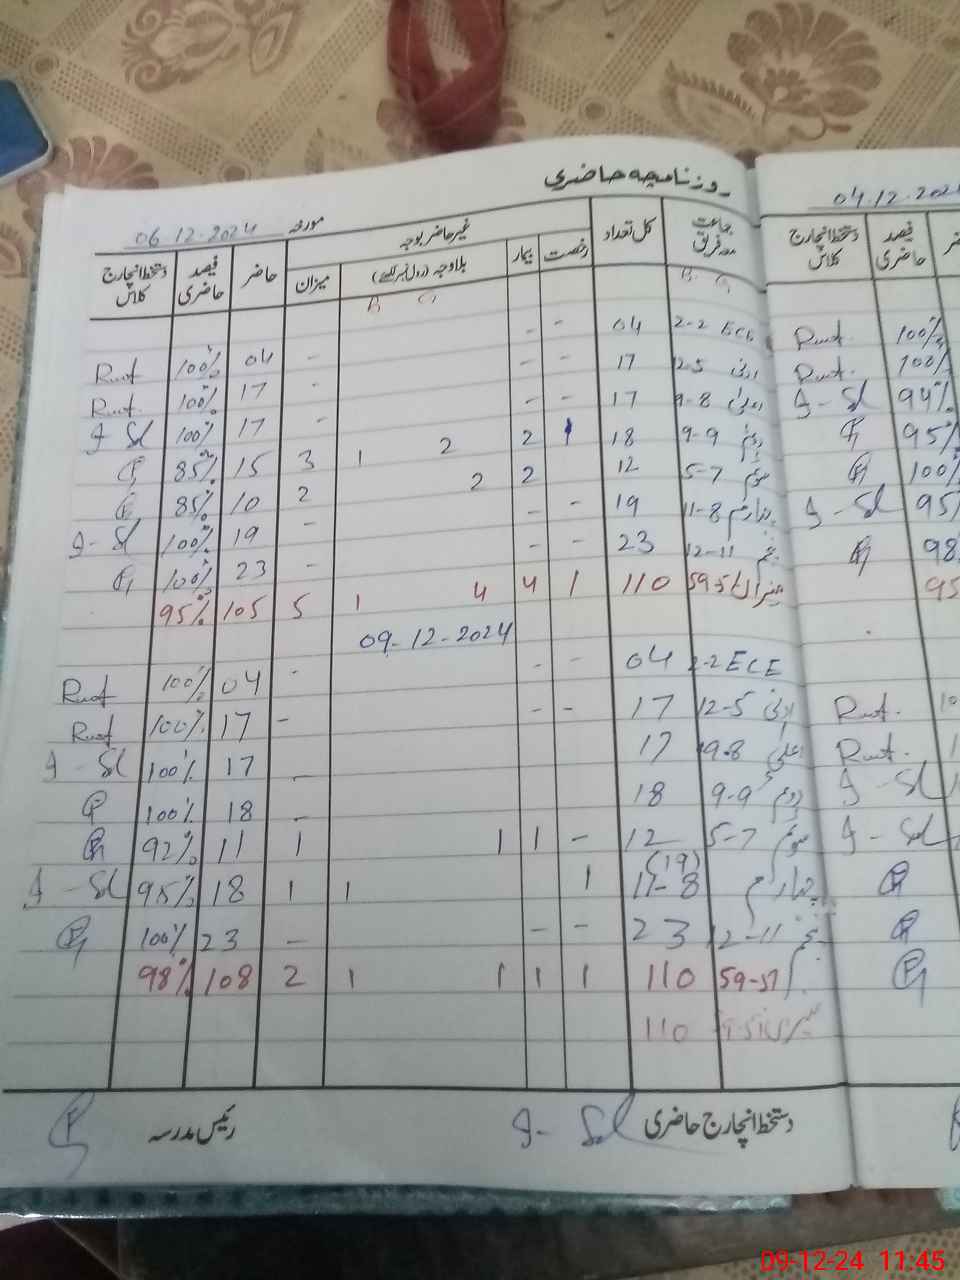 روزنامچہ حاضری
مورخہ 06.12.2024
04.12.2024
جماعت معہ فریق کل تعداد غیر حاضر بوجہ حاضر فیصد حاضری دستخط انچارج کلاس
رخصت بیمار بلاوجہ (رول نمبر لکھیے) میزان
دستخط انچارج کلاس فیصد حاضری
B G B G
2-2 ECE 04 - - - 04 100% Rmt
ادنیٰ 12-5 17 - - - 17 100% Rmt.
اعلیٰ 9-8 17 - - - 17 100% J-Sd
دوئم 9-9 18 1 2 2 1 3 15 85%
سوئم 5-7 12 2 2 2 10 85%
چہارم 11-8 19 - - - 19 100% J-Sd
پنجم 12-11 23 - - - 23 100%
میزان 59-51 110 1 4 4 1 5 105 95%
Rmt. 100%
Rmt. 100%
J-Sd 94%
95%
100%
J-Sd 95%
98
95
09-12-2024
2-2 ECE 04 - - - 04 100% Rmt
ادنیٰ 12-5 17 - - - 17 100% Rmt
اعلیٰ 9-8 17 - 17 100% J-Sd
دوئم 9-9 18 - 18 100%
سوئم 5-7 12 - 1 1 1 11 92%
چہارم 11-8 (19) 1 1 1 18 95% J-Sd
پنجم 12-11 23 - - - 23 100%
59-51 110 1 1 1 1 2 108 98%
110
Rmt.
Rmt.
J-Sd
J-Sd
دستخط انچارج حاضری J-Sd رئیس مدرسہ
09-12-24 11:45